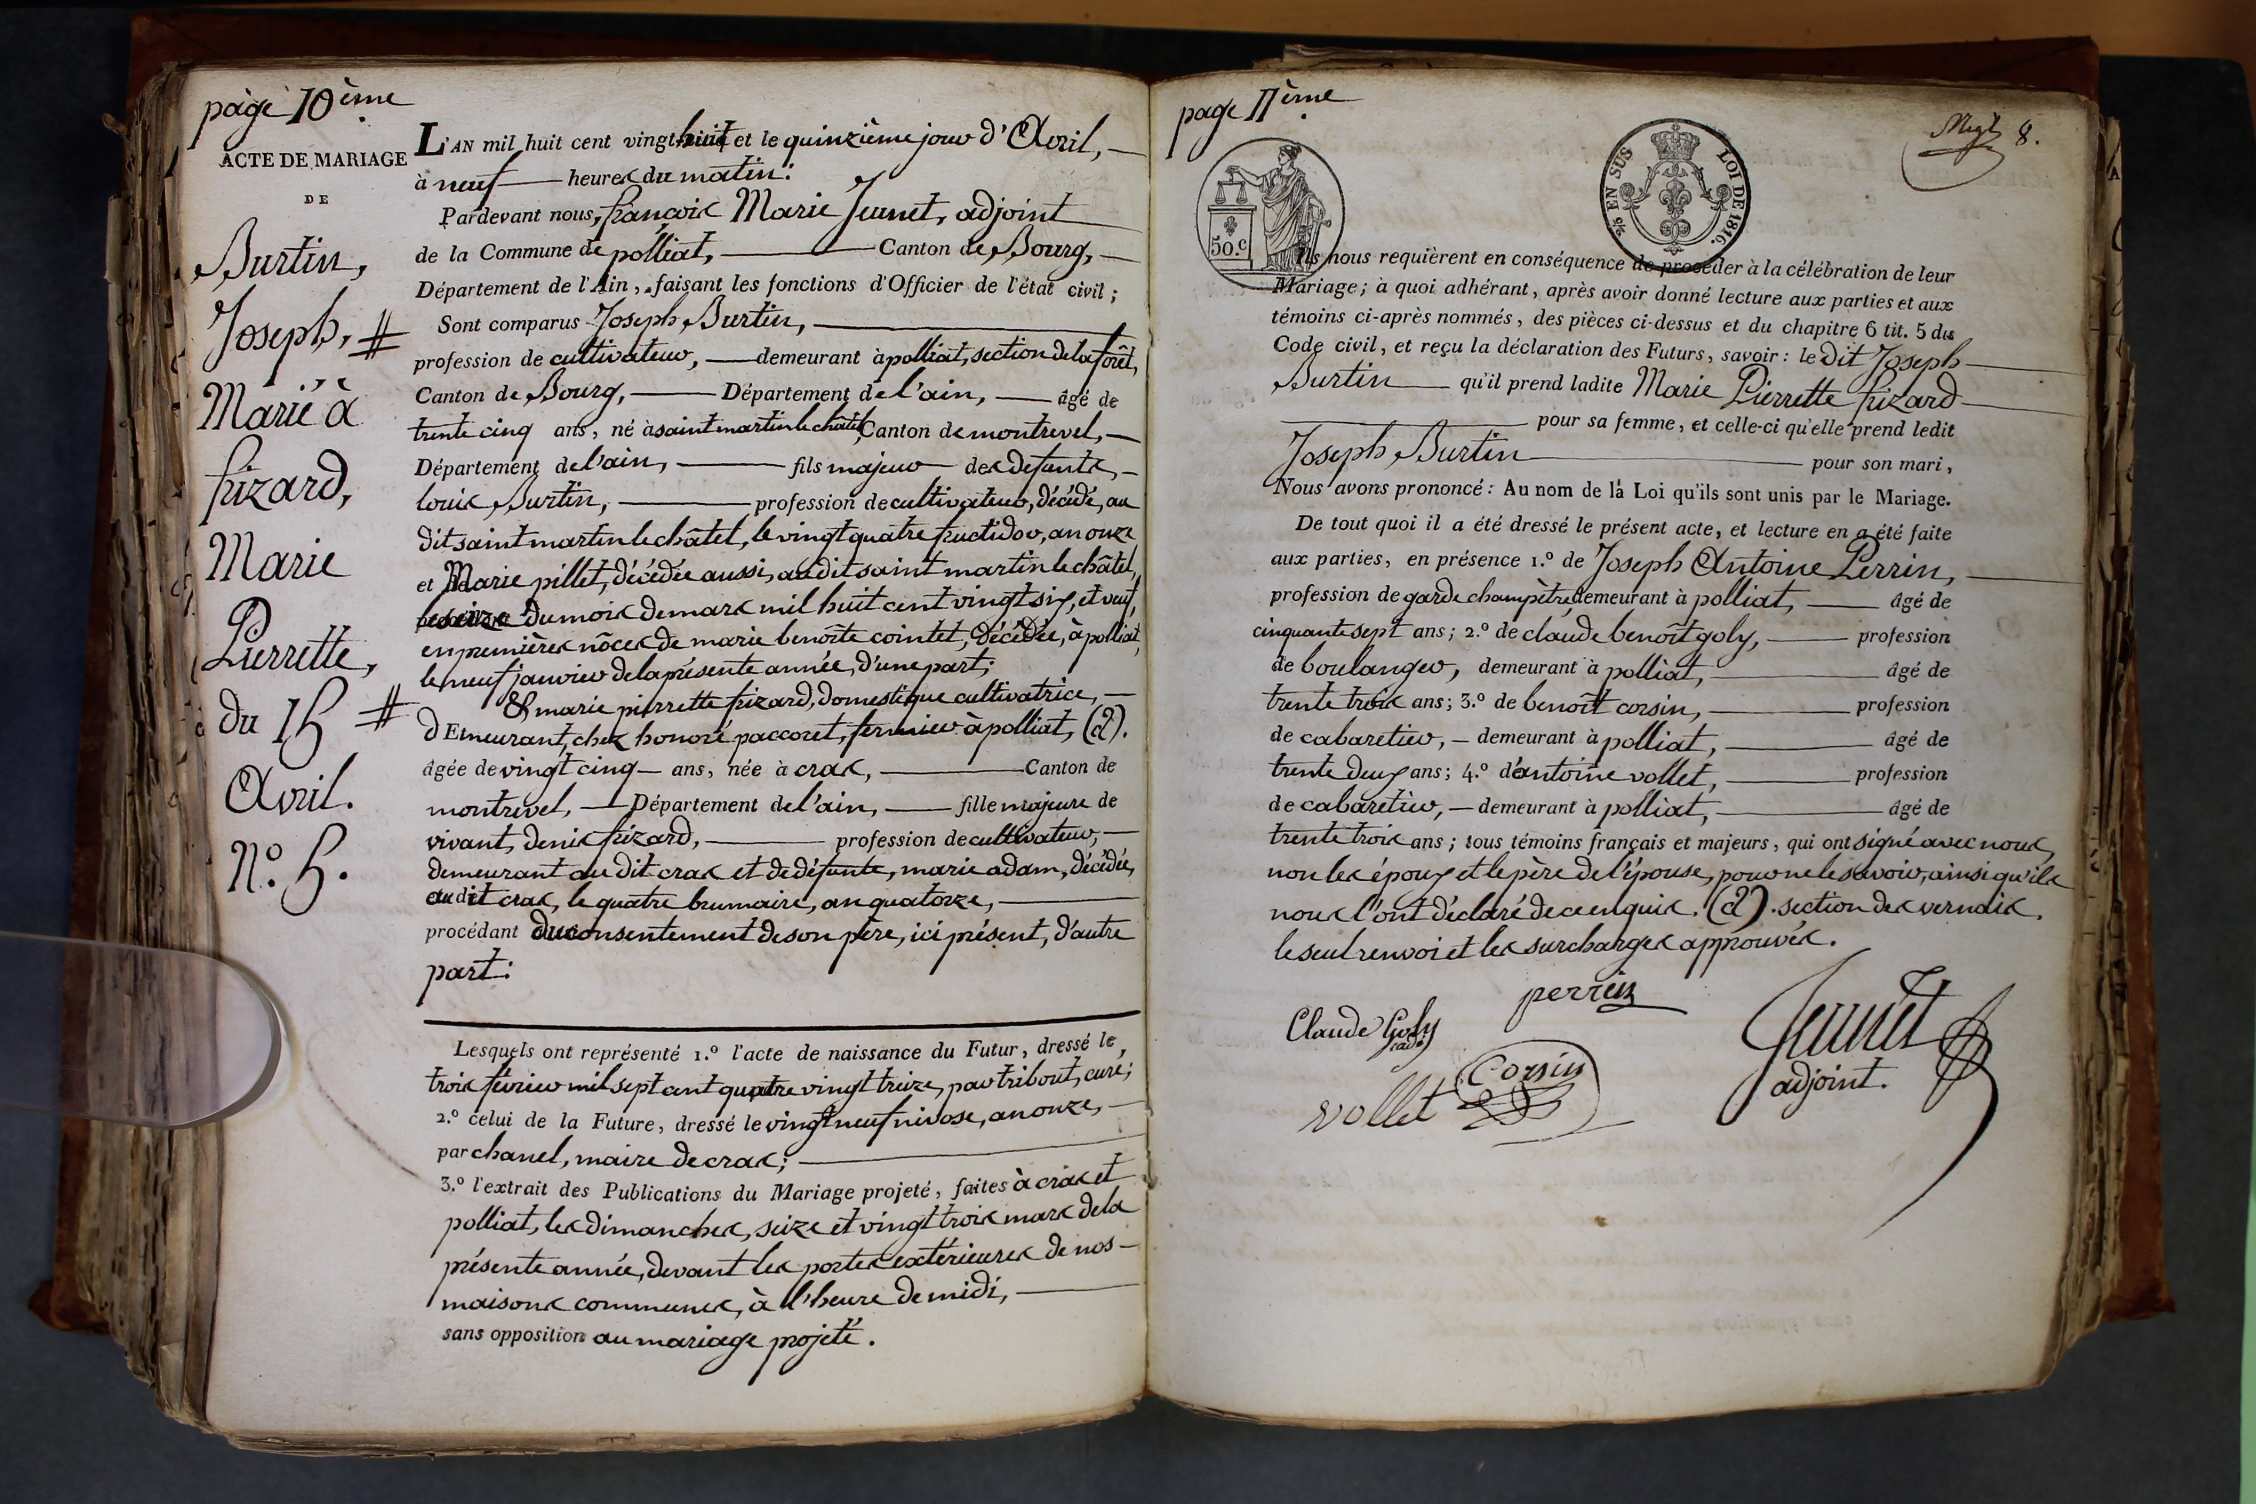 page 10ème
ACTE DE MARIAGE
DE
Burtin,
Joseph, #
Marié à
frizard,
Marie
Pierrette,
du 15 #
Avril.
N.º 5.
L'AN mil huit cent vingt huit et le quinzième jour d'Avril,
à neuf heures du matin:
Pardevant nous, françois Marie Jeunet, adjoint
de la Commune de polliat, Canton de Bourg,
Département de l'Ain, faisant les fonctions d'Officier de l'état civil;
Sont comparus Joseph Burtin,
profession de cultivateur, demeurant à polliat, section de la forêt,
Canton de Bourg, Département de l'ain, âgé de
trente cinq ans, né à saint martin le châtel, Canton de montrevel,
Département de l'ain, fils majeur des defunts,
louis Burtin, profession de cultivateur, décédé, au
dit saint martin le châtel, le vingt quatre fructidor, an onze
et Marie pillet, décédée aussi, audit saint martin le châtel,
le seize du mois de mars mil huit cent vingt six, et veuf,
en premières nôces de marie benoîte cointet, décédée, à polliat,
le neuf janvier de la présente année, d'une part;
& marie pierrette frizard, domestique cultivatrice,
dEmeurant, chez honoré paccoret, fermier à polliat, (a).
âgée de vingt cinq ans, née à cras, Canton de
montrevel, Département de l'ain, fille majeure de
vivant, denis frizard, profession de cultivateur,
demeurant au dit cras et de défunte, marie adam, décédée,
audit cras, le quatre brumaire, an quatorze,
procédant du consentement de son père, ici présent, d'autre
part:
Lesquels ont représenté 1.º l'acte de naissance du Futur, dressé le,
trois février mil sept cent quatre vingt treize, par tribout, curé;
2.º celui de la Future, dressé le vingt neuf nivose, an onze,
par chanel, maire de cras;
3.º l'extrait des Publications du Mariage projeté, faites à cras et
polliat, les dimanches, seize et vingt trois mars de la
présente année, devant les portes extérieures de nos
maisons communes, à l'heure de midi,
sans opposition au mariage projeté.
page 11ème
8.
50.c
EN SUS
LOI DE 1816.
Ils nous requièrent en conséquence de procéder à la célébration de leur
Mariage; à quoi adhérant, après avoir donné lecture aux parties et aux
témoins ci-après nommés, des pièces ci-dessus et du chapitre 6 tit. 5 du
Code civil, et reçu la déclaration des Futurs, savoir: le dit Joseph
Burtin qu'il prend ladite Marie Pierrette frizard
pour sa femme, et celle-ci qu'elle prend ledit
Joseph Burtin pour son mari,
Nous avons prononcé: Au nom de la Loi qu'ils sont unis par le Mariage.
De tout quoi il a été dressé le présent acte, et lecture en a été faite
aux parties, en présence 1.º de Joseph Antoine Perrin,
profession de garde champêtre demeurant à polliat, âgé de
cinquante sept ans; 2.º de claude benoît goly, profession
de boulanger, demeurant à polliat, âgé de
trente trois ans; 3.º de benoît corsin, profession
de cabaretier, demeurant à polliat, âgé de
trente deux ans; 4.º d'antoine vollet, profession
de cabaretier, demeurant à polliat, âgé de
trente trois ans; tous témoins français et majeurs, qui ont signé avec nous,
non les époux et le père de l'épouse, pour ne le savoir, ainsi qu'ils
nous l'ont déclaré de ce enquis. (a). section des vernais.
le seul renvoi et les surcharges approuvés.
perrin
Claude Goly
cadet
Jeunet
adjoint.
Corsin
vollet